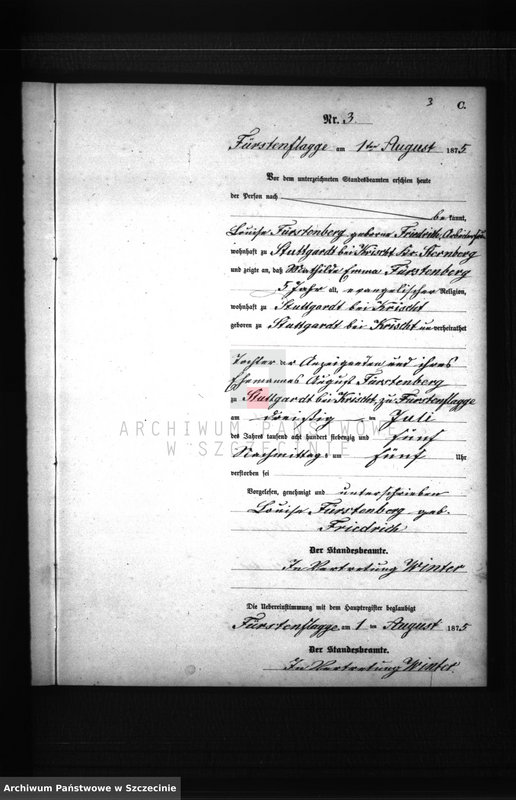 3 C.
Nr. 3.
Fürstenflagge am 1ten August 1875
Vor dem unterzeichneten Standesbeamten erschien heute
der Person nach
be kannt,
Louise Fürstenberg geborne Friedrich, Arbeiterfrau
wohnhaft zu Stuttgardt bei Krischt Kr. Sternberg
und zeigte an, daß Mathilde Emma Fürstenberg
5 Jahr alt, evangelischer Religion,
wohnhaft zu Stuttgardt bei Krischt
geboren zu Stuttgardt bei Krischt unverheirathet
Tochter der Anzeigenden und ihres
Ehemannes August Fürstenberg
zu Stuttgardt bei Krischt, zu Fürstenflagge
am dreißig ten Juli
des Jahres tausend acht hundert siebenzig und fünf
Nachmittags um fünf Uhr
verstorben sei
Vorgelesen, genehmigt und unterschrieben
Louise Fürstenberg geb.
Friedrich
Der Standesbeamte.
In Vertretung Winter
Die Uebereinstimmung mit dem Hauptregister beglaubigt
Fürstenflagge am 1 ten August 1875
Der Standesbeamte.
In Vertretung Winter.
ARCHIWUM PAŃSTWOWE
W SZCZECINIE
Archiwum Państwowe w Szczecinie